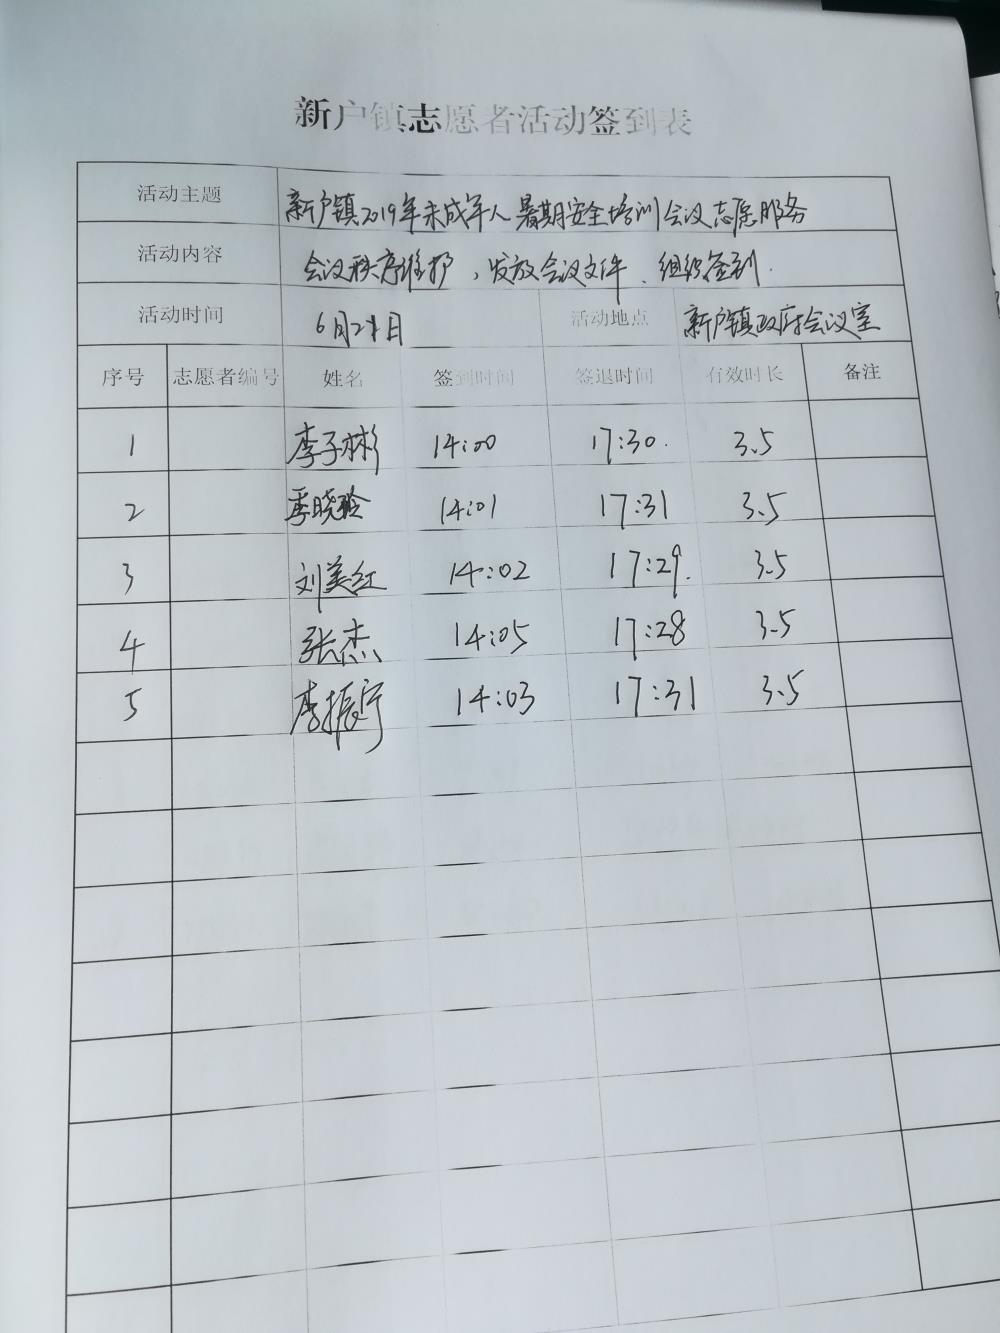 新户镇志愿者活动签到表
活动主题 新户镇2019年未成年人暑期安全培训会议志愿服务
活动内容 会议秩序维护、发放会议文件、组织签到.
活动时间 6月21日 活动地点 新户镇政府会议室
序号 志愿者编号 姓名 签到时间 签退时间 有效时长 备注
1 李子彬 14:00 17:30. 3.5
2 季晓玲 14:01 17:31 3.5
3 刘美红 14:02 17:29. 3.5
4 张杰 14:05 17:28 3.5
5 李振宇 14:03 17:31 3.5